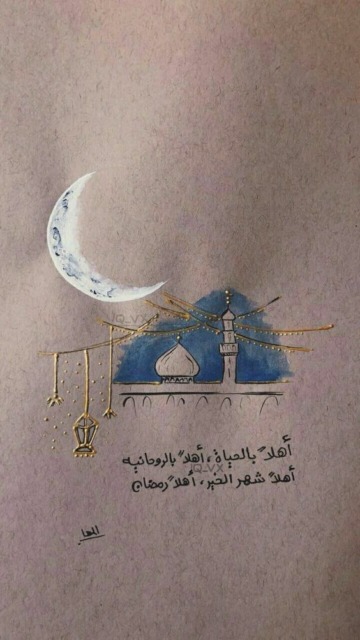 IQ_VX
أهلاً بالحياة، أهلاً بالروحانيه
IQ_VX
أهلاً شهر الخير، أهلاً رمضان
المها